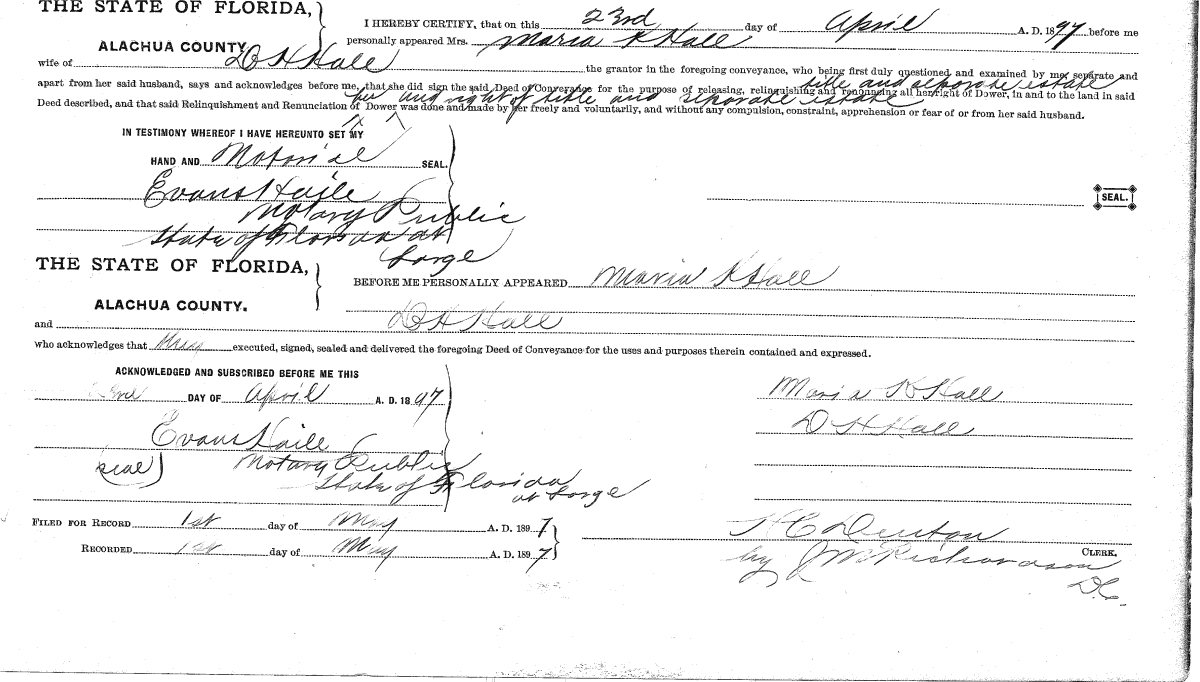 THE STATE OF FLORIDA,
ALACHUA COUNTY.
I HEREBY CERTIFY, that on this 23rd day of April A. D. 1897 before me
personally appeared Mrs. Maria K Hall
wife of D H Hall the grantor in the foregoing conveyance, who being first duly questioned and examined by me, separate and
title and seporate estate
apart from her said husband, says and acknowledges before me, that she did sign the said Deed of Conveyance for the purpose of releasing, relinquishing and renouncing all her right of Dower, in and to the land in said
her and right of title and seporate estate
Deed described, and that said Relinquishment and Renunciation of Dower was done and made by her freely and voluntarily, and without any compulsion, constraint, apprehension or fear of or from her said husband.
IN TESTIMONY WHEREOF I HAVE HEREUNTO SET MY
HAND AND Notorial SEAL.
Evans Haile
SEAL.
Notary Public
State of Florida at
Large
THE STATE OF FLORIDA,
ALACHUA COUNTY.
BEFORE ME PERSONALLY APPEARED Maria K Hall
and D H Hall
who acknowledges that they executed, signed, sealed and delivered the foregoing Deed of Conveyance for the uses and purposes therein contained and expressed.
ACKNOWLEDGED AND SUBSCRIBED BEFORE ME THIS
23rd DAY OF April A. D. 1897
Maria K Hall
D H Hall
Evans Haile
(seal) Notary Public
State of Florida
at Large
FILED FOR RECORD 1st day of May A. D. 1897
RECORDED 1st day of May A. D. 1897
H C Denton
CLERK.
by J M Richardson
D.C.